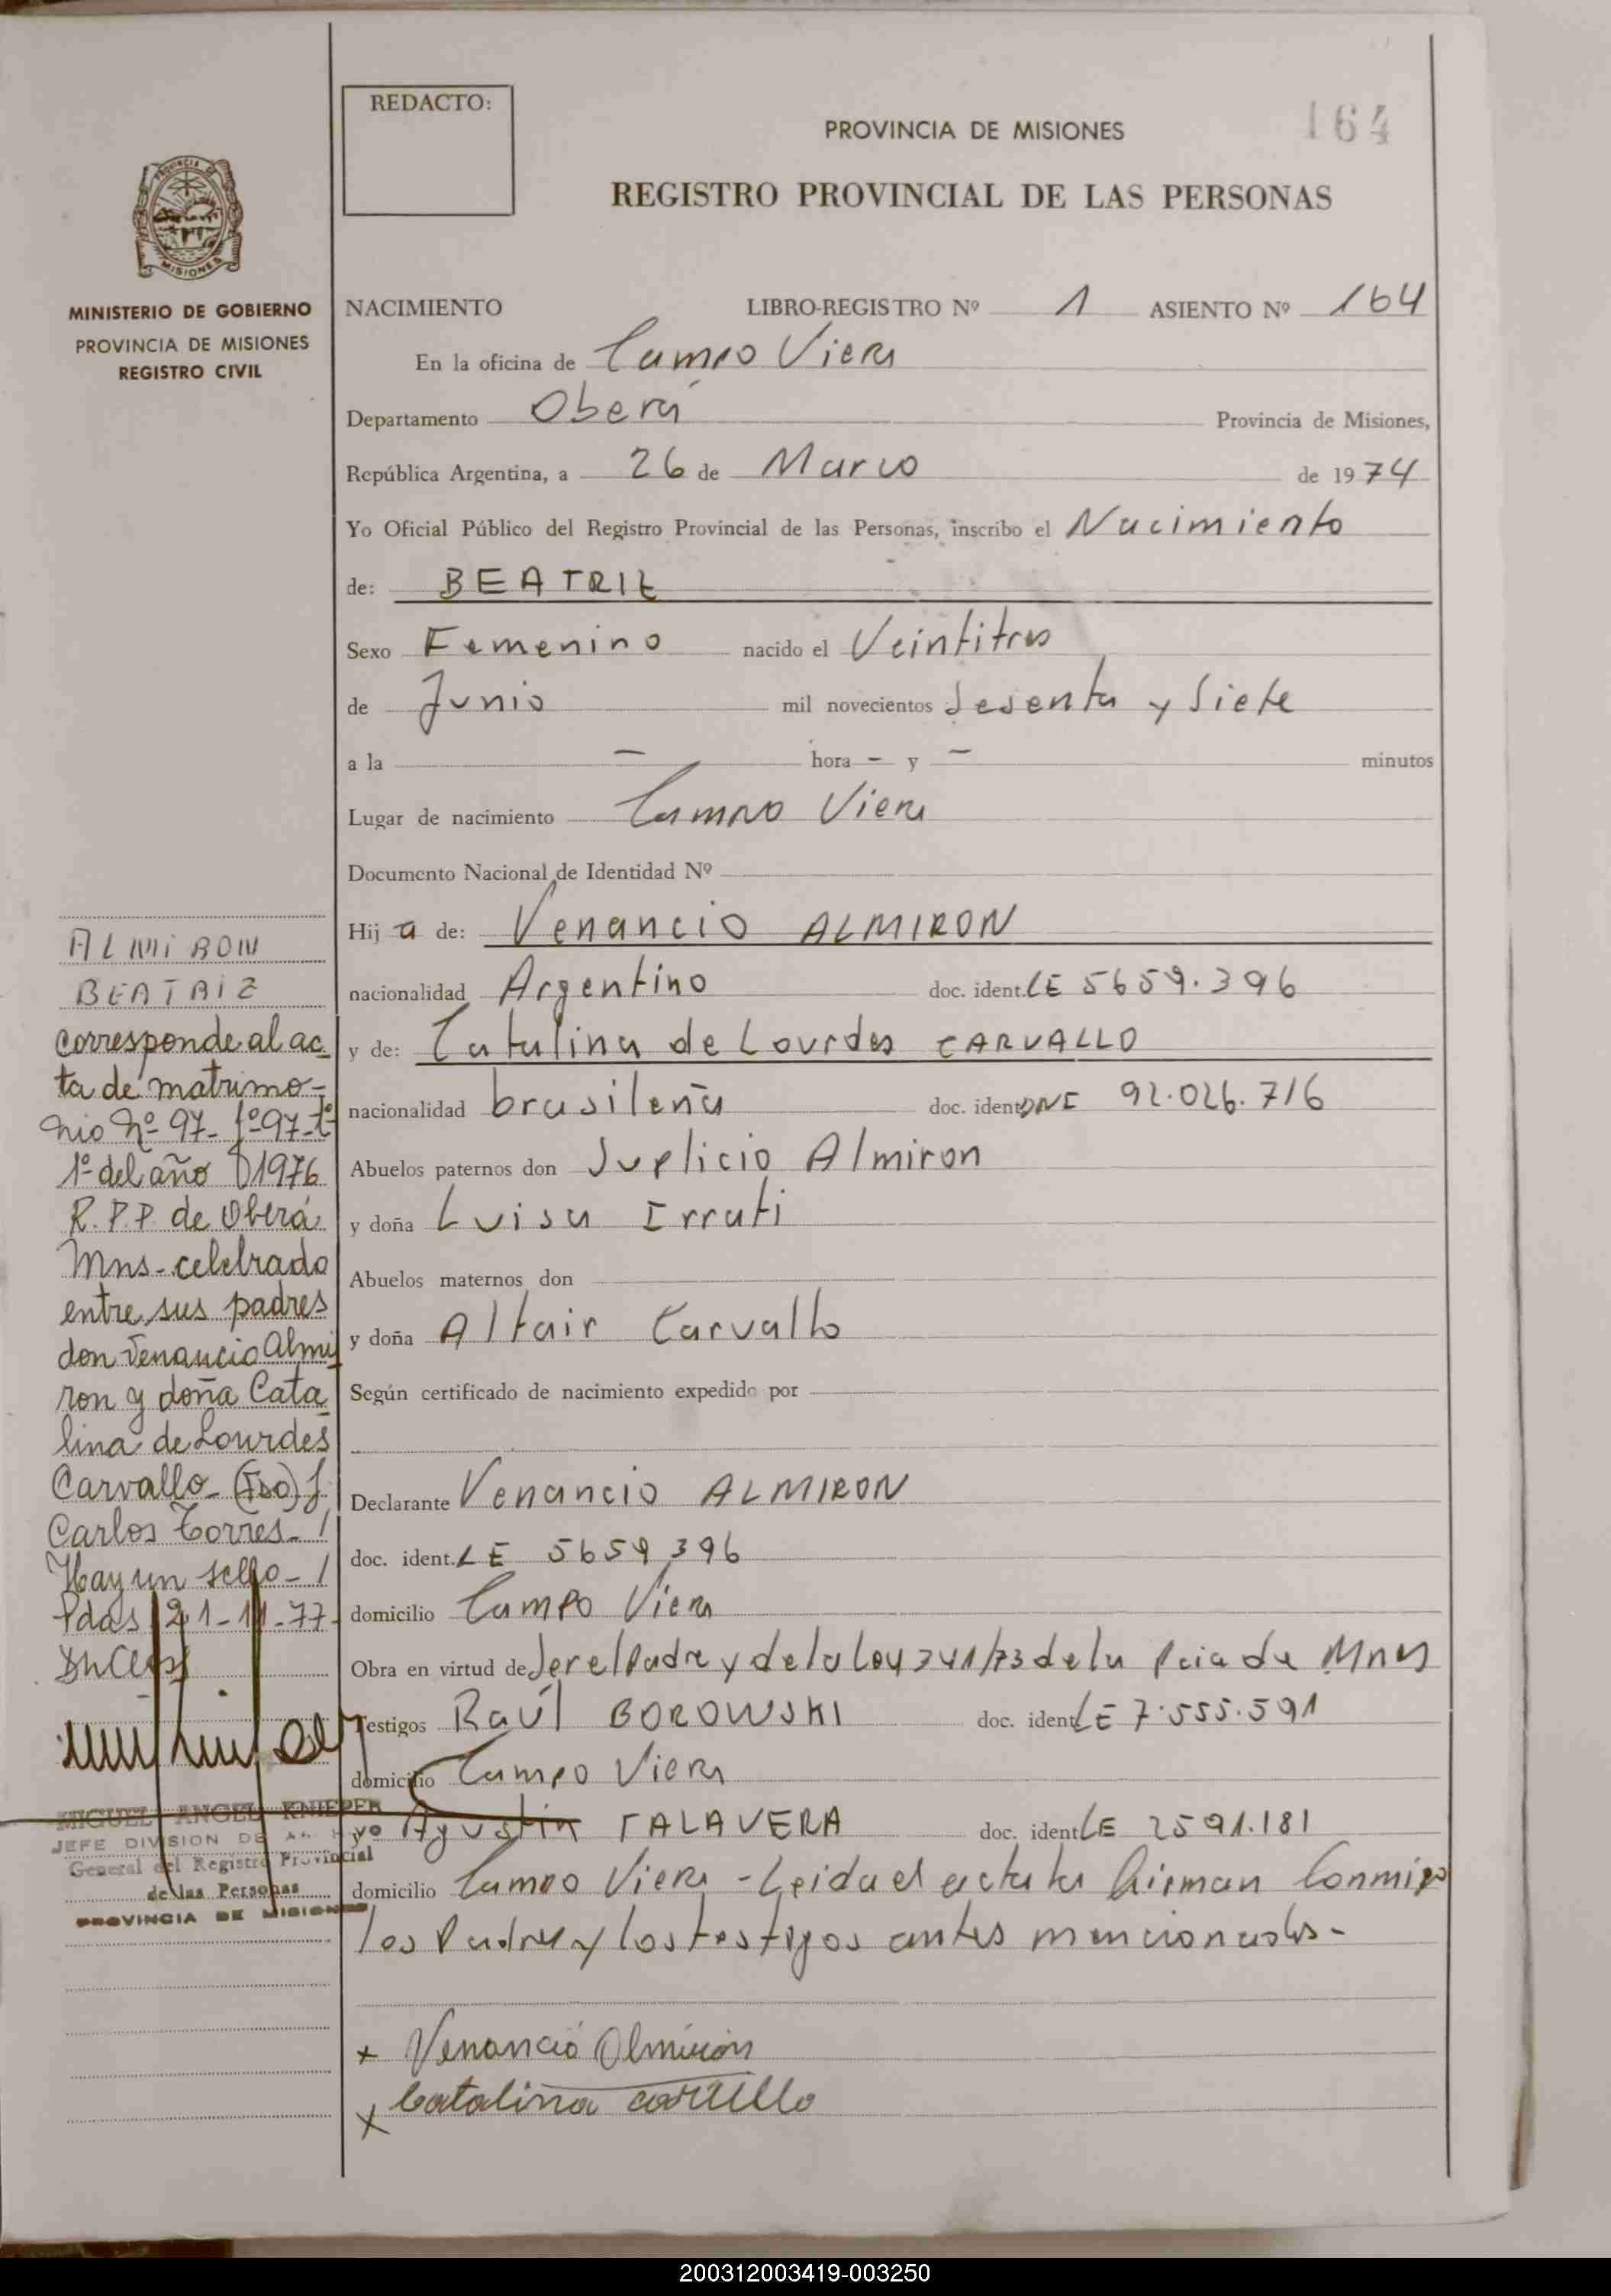 REDACTO:
PROVINCIA DE MISIONES
164
REGISTRO PROVINCIAL DE LAS PERSONAS
PROVINCIA DE
MISIONES
MINISTERIO DE GOBIERNO
PROVINCIA DE MISIONES
REGISTRO CIVIL
NACIMIENTO LIBRO-REGISTRO Nº 1 ASIENTO Nº 164
En la oficina de Campo Viera
Departamento Oberá Provincia de Misiones,
República Argentina, a 26 de Marzo de 1974
Yo Oficial Público del Registro Provincial de las Personas, inscribo el Nacimiento
de: BEATRIZ
Sexo Femenino nacido el Veintitres
de Junio mil novecientos Sesenta y Siete
a la — hora — y — minutos
Lugar de nacimiento Campo Viera
Documento Nacional de Identidad Nº
Hij a de: Venancio ALMIRON
nacionalidad Argentino doc. ident. LE 5659.396
y de: Catalina de Lourdes CARVALLO
nacionalidad brasileña doc. ident. DNI 92.026.716
Abuelos paternos don Suplicio Almiron
y doña Luisa Irrati
Abuelos maternos don
y doña Altair Carvallo
Según certificado de nacimiento expedido por
Declarante Venancio ALMIRON
doc. ident. LE 5659396
domicilio Campo Viera
Obra en virtud de Ser el Padre y de la Ley 341/73 de la Pcia de Mnes
Testigos Raúl BOROWSKI doc. ident. LE 7.555.591
domicilio Campo Viera
yº Agustín TALAVERA doc. ident. LE 2591.181
domicilio Campo Viera - Leida el acta la firman Conmigo
los Padres y los testigos antes mencionados-
x Venancio Almiron
x Catalina carvallo
ALMIRON
BEATRIZ
Corresponde al ac-
ta de matrimo-
nio Nº 97- fº 97-tº
1º del año 1976
R.P.P. de Oberá
Mns- celebrado
entre sus padres
don Venancio Almi
ron y doña Cata
lina de Lourdes
Carvallo- (Fdo) J.
Carlos Torres- /
Hay un sello- /
Pdas 21-11-77-
MIGUEL ANGEL KNIEPER
JEFE DIVISION DE
General del Registro Provincial
de las Personas
PROVINCIA DE MISIONES
200312003419-003250